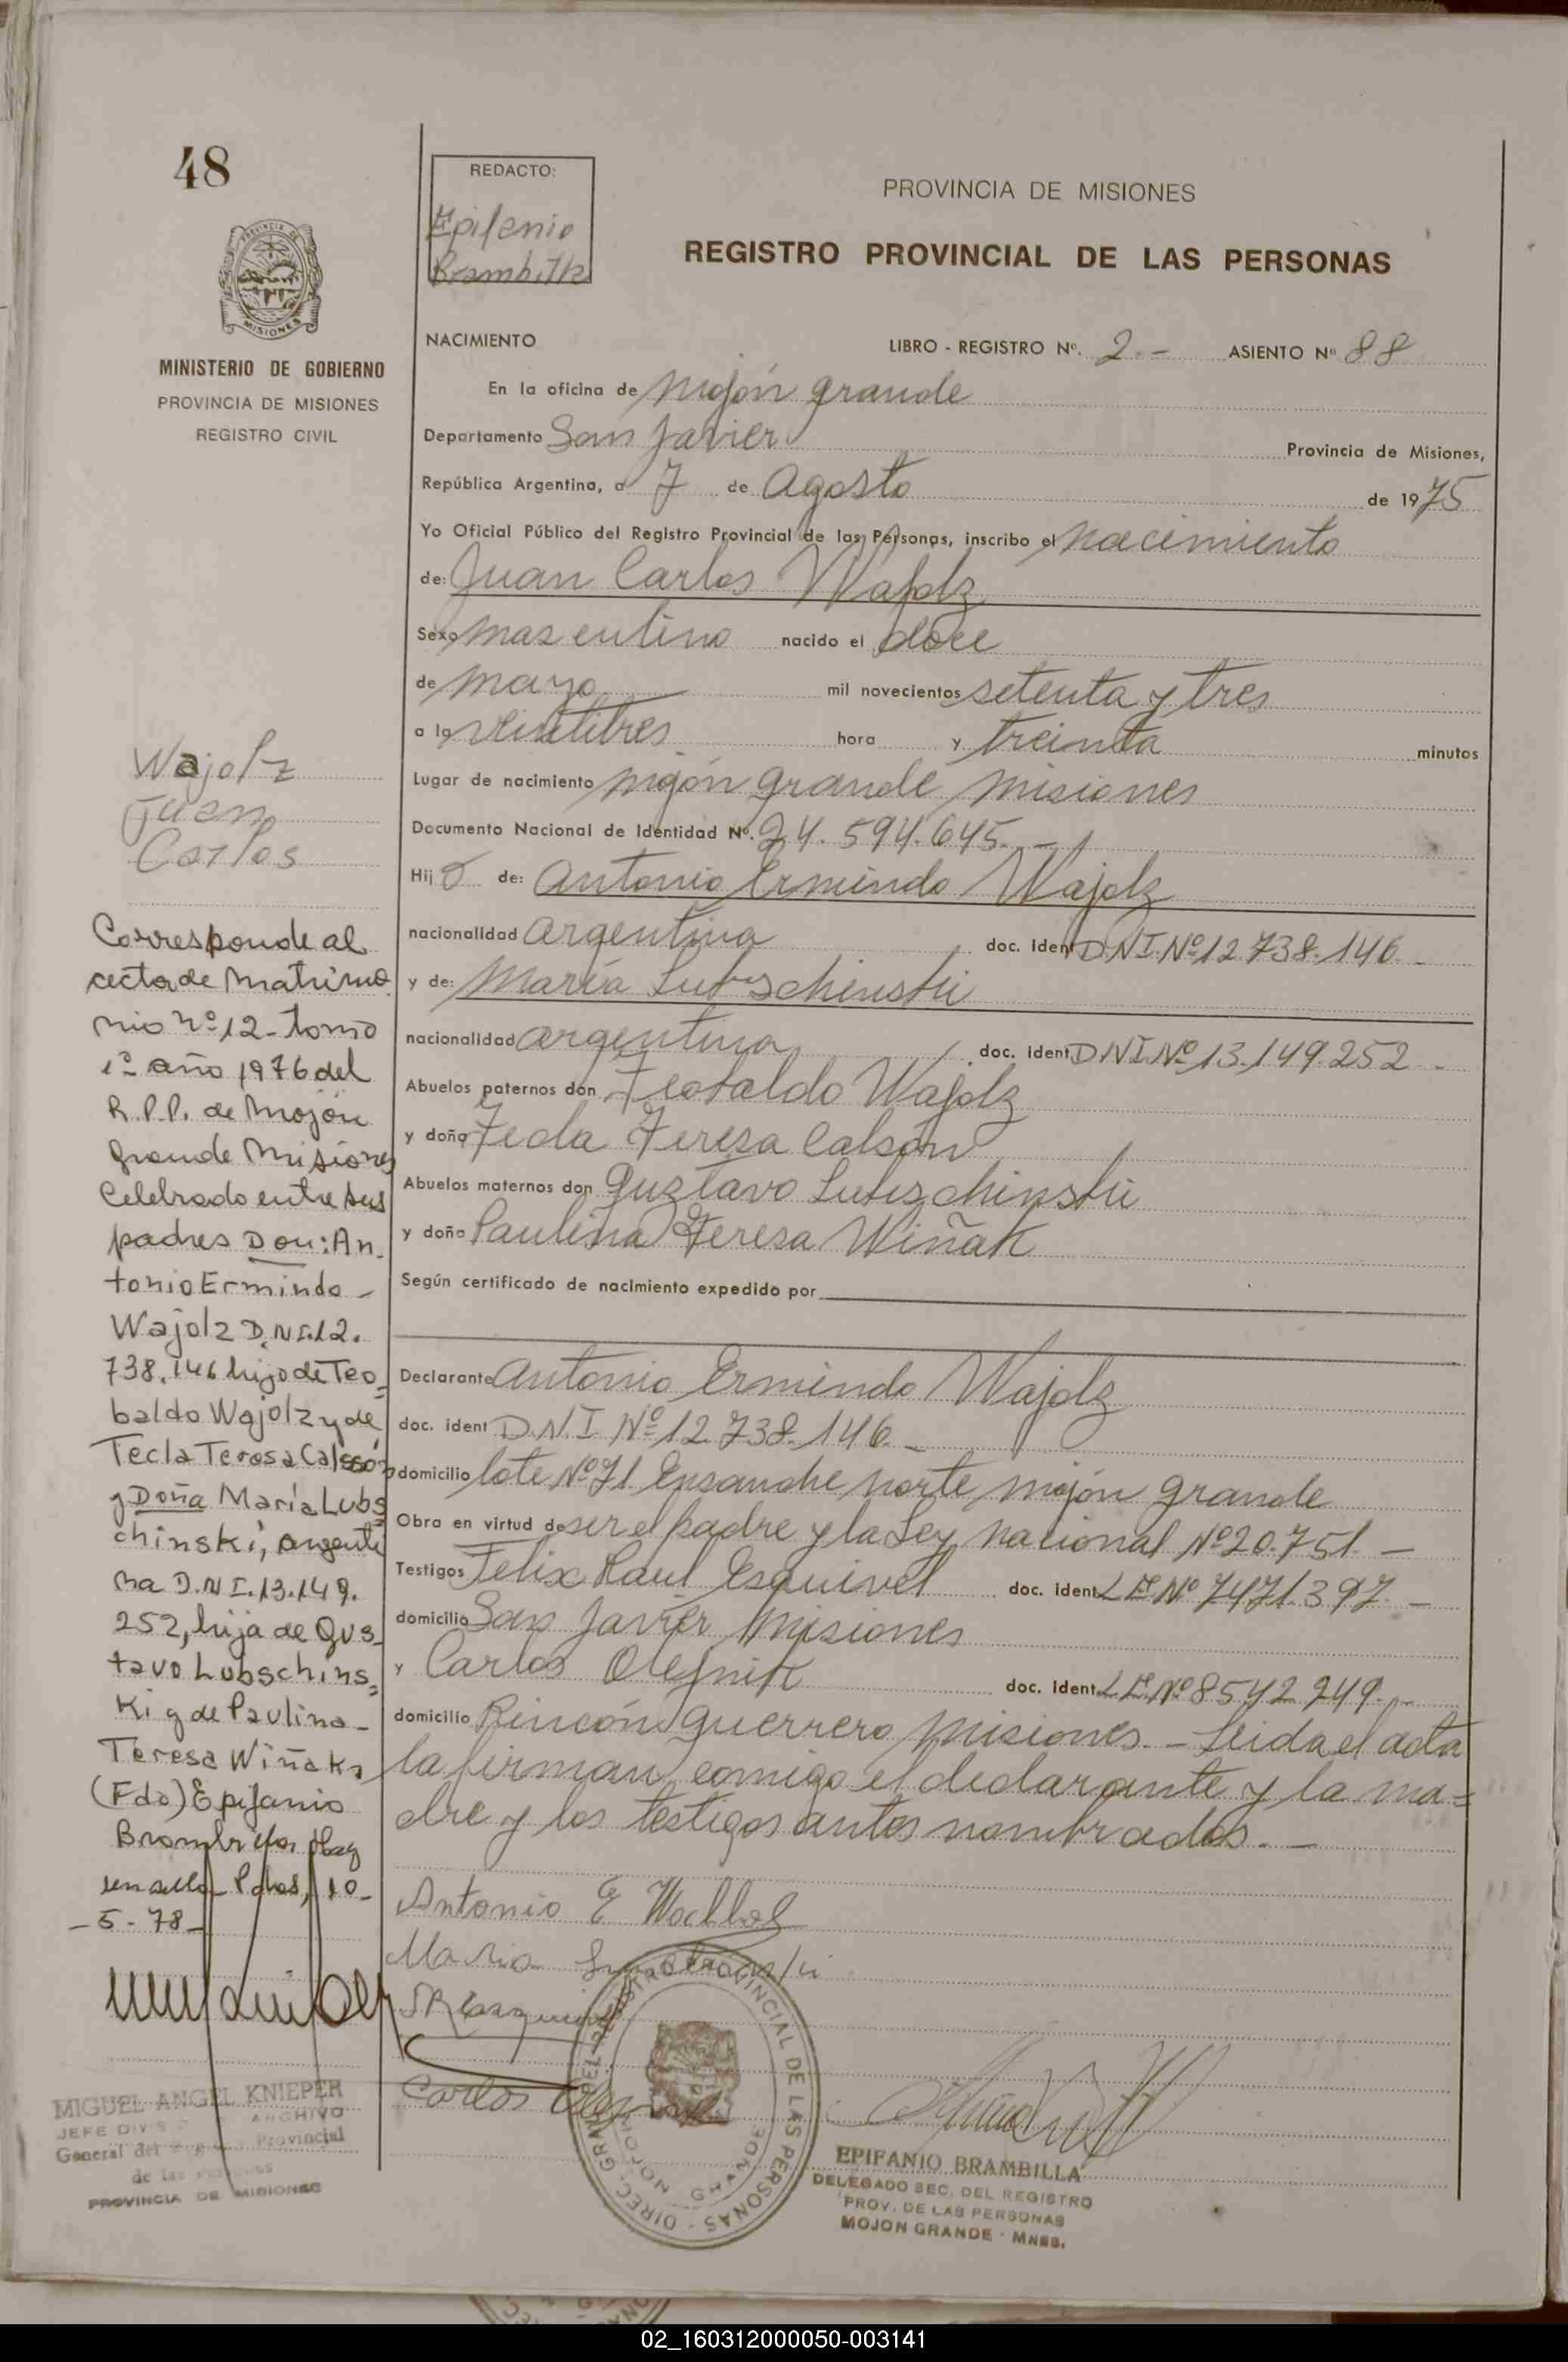 48
MISIONES
MINISTERIO DE GOBIERNO
PROVINCIA DE MISIONES
REGISTRO CIVIL
REDACTO:
Epifanio
Brambilla
PROVINCIA DE MISIONES
REGISTRO PROVINCIAL DE LAS PERSONAS
NACIMIENTO
LIBRO - REGISTRO Nº. 2.- ASIENTO Nº 88
En la oficina de Mojón grande
Departamento San Javier Provincia de Misiones,
República Argentina, a 7 de Agosto de 1975
Yo Oficial Público del Registro Provincial de las Personas, inscribo el nacimiento
de: Juan Carlos Wajolz
Sexo masculino nacido el doce
de mayo mil novecientos setenta y tres
a la veintitres hora y treinta minutos
Lugar de nacimiento mojón grande misiones
Documento Nacional de Identidad Nº. 24.594.645.-
Hijo de: Antonio Ermindo Wajolz
nacionalidad argentina doc. Ident D.N.I. Nº 12.738.146.-
y de: María Lubschinski
nacionalidad argentina doc. Ident D.N.I. Nº 13.149.252.-
Abuelos paternos don Teobaldo Wajolz
y doña Tecla Teresa Calsón
Abuelos maternos don Gustavo Lubschinski
y doña Paulina Teresa Wiñak
Según certificado de nacimiento expedido por
Declarante Antonio Ermindo Wajolz
doc. ident D.N.I Nº 12.738.146.-
domicilio lote Nº 71 Ensanche norte mojón grande
Obra en virtud de ser el padre y la Ley nacional Nº 20.751.-
Testigos Felix Raul Esquivel doc. ident L.E. Nº 7471.397.-
domicilio San Javier Misiones
y Carlos Olejnik doc. ident L.E. Nº 8542.249.-
domicilio Rincón guerrero misiones.- Leida el acta
la firman comigo el declarante y la ma=
dre y los testigos antes nombrados.-
Antonio E
Maria
Carlos
Wajolz
Juan
Carlos
Corresponde al
acta de Matrimo
nio nº 12- tomo
1º año 1976 del
R.P.P. de Mojón
Grande Misiones
Celebrado entre sus
padres Don: An-
tonio Ermindo-
Wajolz D.N.I.12.
738.146 hijo de Teo-
baldo Wajolz y de
Tecla Teresa Calssón
y Doña María Lubs
chinski, argenti
na D.N.I.13.149.
252, hija de Gus-
tavo Lubschins=
ki y de Paulina-
Teresa Wiñaks
(Fdo) Epifanio
Brambilla, hay
un sello- Pdas, 10-
-5-78-
MIGUEL ANGEL KNIEPER
JEFE ARCHIVO
General del Provincial
de las
PROVINCIA DE MISIONES
REGISTRO PROVINCIAL DE LAS PERSONAS - DIREC. GRAL. DEL
MOJON GRANDE
EPIFANIO BRAMBILLA
DELEGADO SEC. DEL REGISTRO
PROV. DE LAS PERSONAS
MOJON GRANDE - MNES.
02_160312000050-003141